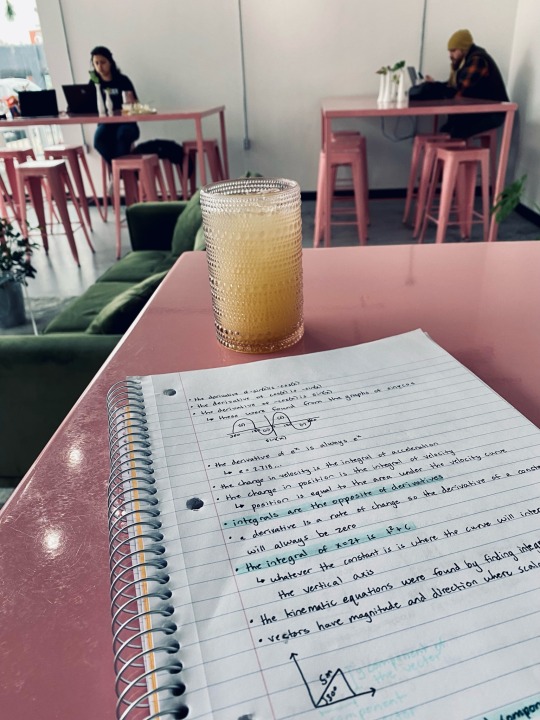 • the derivative of sin(x) is cos(x)
• the derivative of cos(x) is -sin(x)
• the derivative of -cos(x) is sin(x)
↳ these were found from the graphs of
sin(x)
• the derivative of eˣ is always eˣ
↳ e = 2.718...
• the change in velocity is the integral of acceleration
• the change in position is the integral of velocity
↳ position is equal to the area under the velocity curve
• integrals are the opposite of derivatives
• a derivative is a rate of change so the derivative of a
will always be zero
• the integral of x=2t is t²+c
↳ whatever the constant is is where the curve will
the vertical axis
• the kinematic equations were found by finding
• vectors have magnitude and direction where
5m
30°
component of
the vector